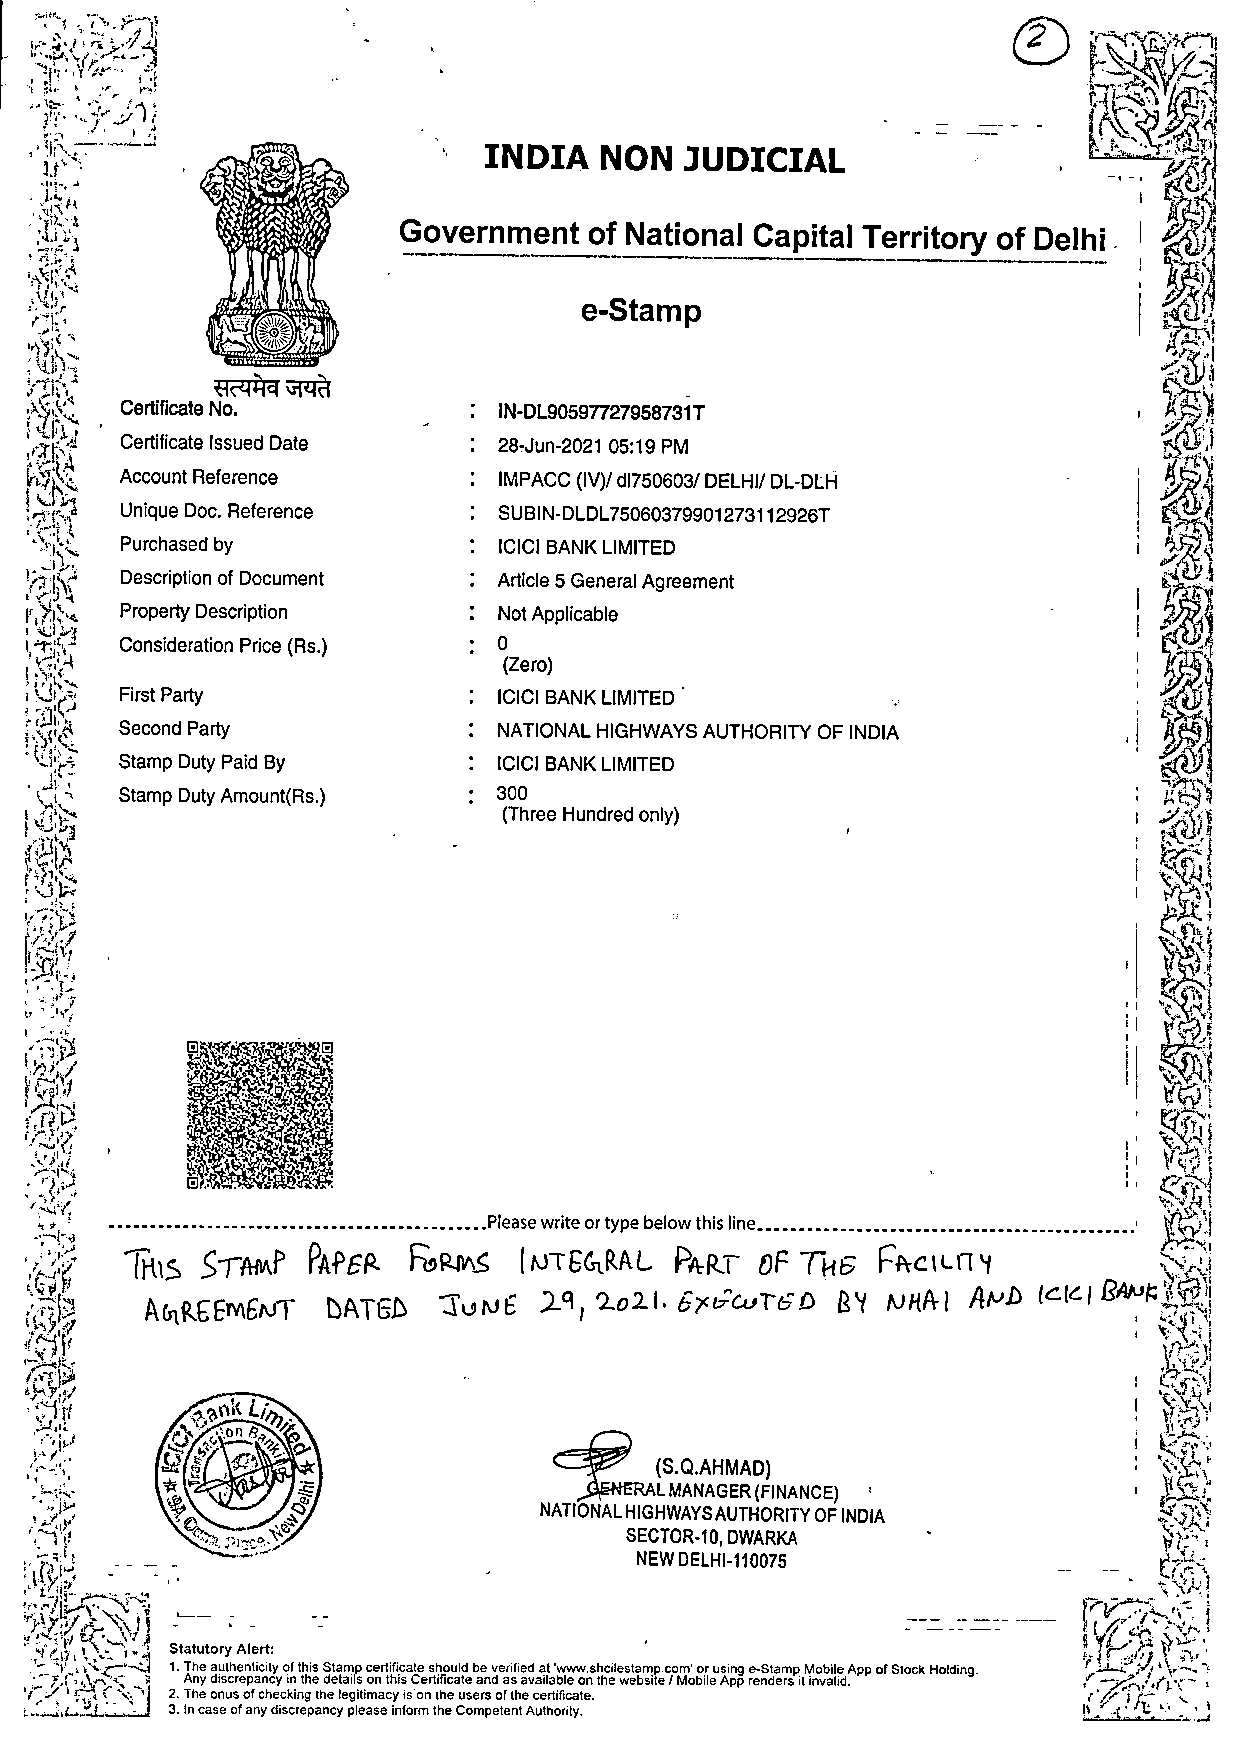 2
INDIA NON JUDICIAL
Government of National Capital Territory of Delhi
e-Stamp
सत्यमेव जयते
Certificate No. : IN-DL90597727958731T
Certificate Issued Date : 28-Jun-2021 05:19 PM
Account Reference : IMPACC (IV)/ dl750603/ DELHI/ DL-DLH
Unique Doc. Reference : SUBIN-DLDL75060379901273112926T
Purchased by : ICICI BANK LIMITED
Description of Document : Article 5 General Agreement
Property Description : Not Applicable
Consideration Price (Rs.) : 0
(Zero)
First Party : ICICI BANK LIMITED
Second Party : NATIONAL HIGHWAYS AUTHORITY OF INDIA
Stamp Duty Paid By : ICICI BANK LIMITED
Stamp Duty Amount(Rs.) : 300
(Three Hundred only)
Please write or type below this line
THIS STAMP PAPER FORMS INTEGRAL PART OF THE FACILITY
AGREEMENT DATED JUNE 29, 2021. EXECUTED BY NHAI AND ICICI BANK
ICICI Bank Limited
Transaction Banking
9A, Place, New Delhi
(S.Q.AHMAD)
GENERAL MANAGER (FINANCE)
NATIONAL HIGHWAYS AUTHORITY OF INDIA
SECTOR-10, DWARKA
NEW DELHI-110075
Statutory Alert:
1. The authenticity of this Stamp certificate should be verified at 'www.shcilestamp.com' or using e-Stamp Mobile App of Stock Holding.
Any discrepancy in the details on this Certificate and as available on the website / Mobile App renders it invalid.
2. The onus of checking the legitimacy is on the users of the certificate.
3. In case of any discrepancy please inform the Competent Authority.